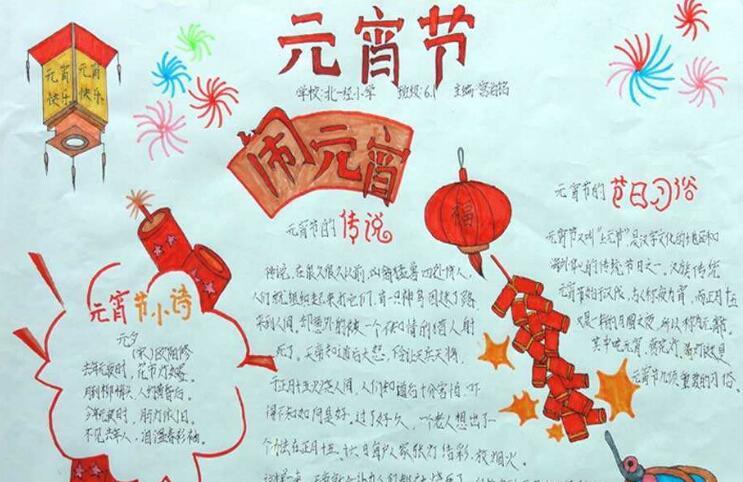 元宵节
学校:北一经小学 班级:6.1 主编:
元宵 元宵
快乐 快乐
闹元宵
福
元宵节小诗
元夕
(宋)欧阳修
去年元夜时,花市灯如昼。
月到柳梢头,人约黄昏后。
今年元夜时,月与灯依旧。
不见去年人,泪湿春衫袖。
元宵节的传说
传说,在很久很久以前,凶禽猛兽四处伤人,
人们就组织起来打它们,有一只神鸟因迷了路
来到人间,却意外的被一个不知情的猎人射
死了。天帝知道后大怒,下令让天兵天将
在正月十五火烧人间,人们知道后十分害怕,吓
得不知如何是好,过了好久,一个老人想出了一
个办法在正月十五、十六日每户人家张灯结彩,放烟火
元宵节的节日习俗
元宵节又叫"上元节"是汉字文化的地区和
海外华人的传统节日之一,汉族传统
元宵节始于汉代,古人称夜为宵,而正月十五
又是一年的月圆之夜,所以称为元宵。
其中吃元宵、赏花灯、
元宵节几项重要的习俗。